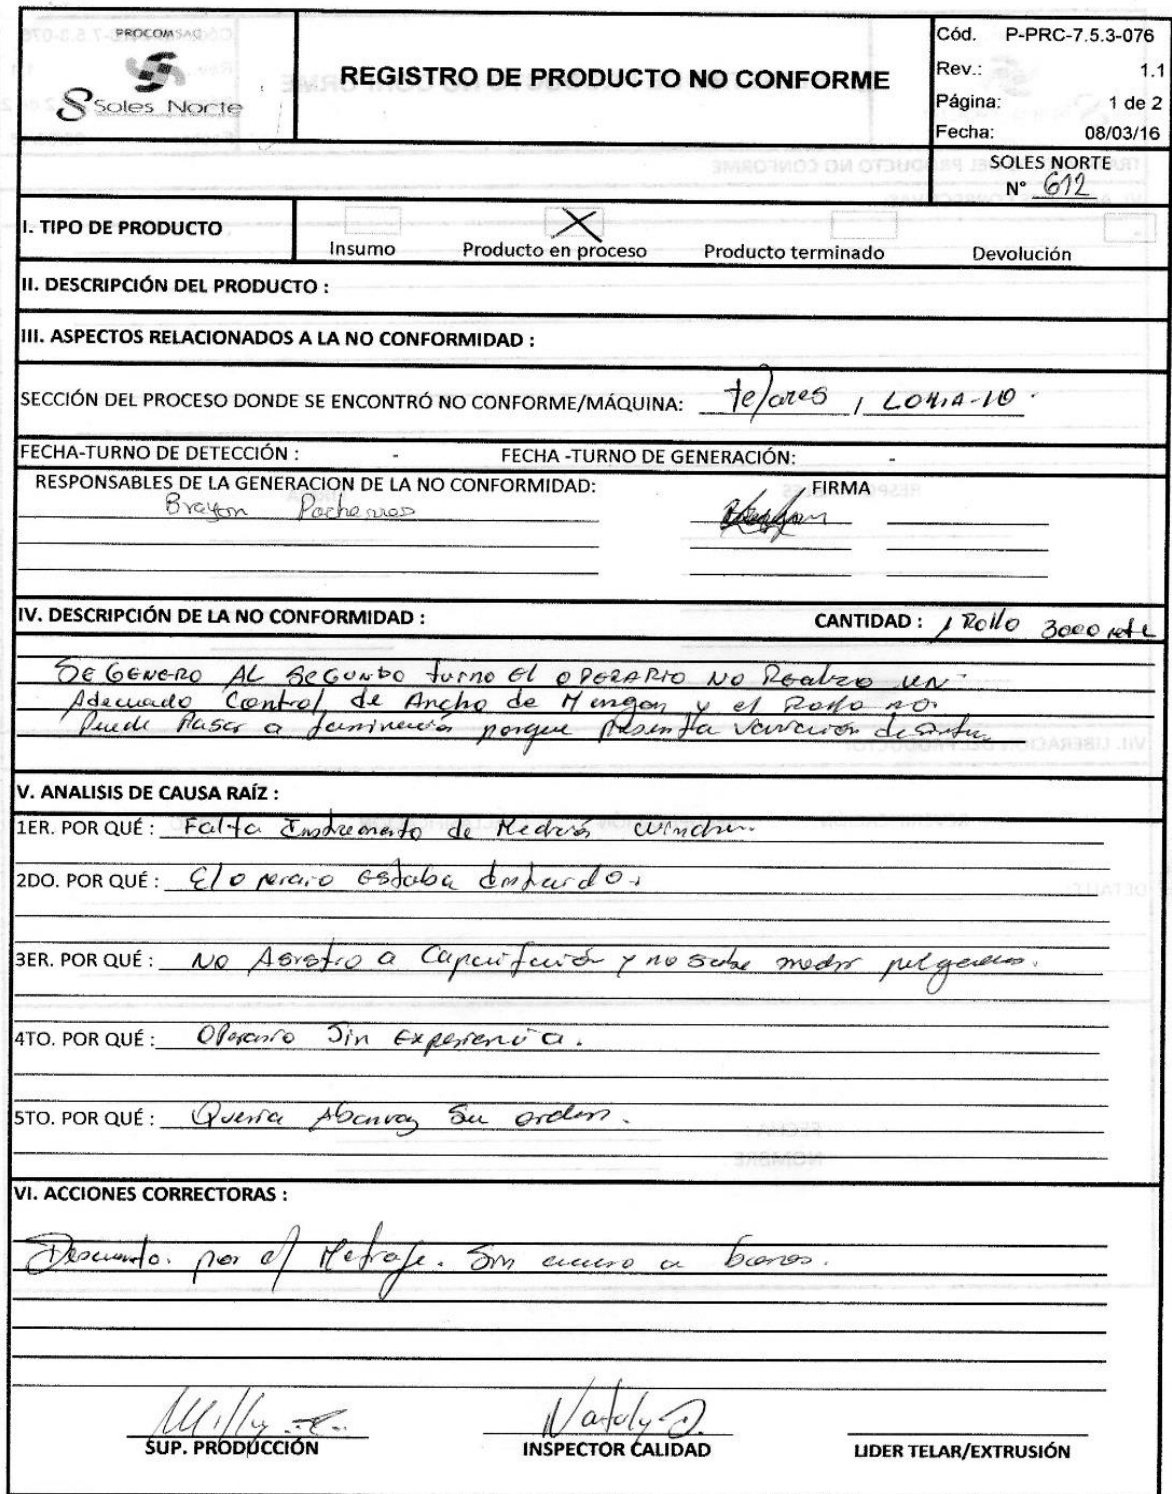 PROCOMSAC
Soles Norte
REGISTRO DE PRODUCTO NO CONFORME
Cód. P-PRC-7.5.3-076
Rev.: 1.1
Página: 1 de 2
Fecha: 08/03/16
SOLES NORTE
N° 612
I. TIPO DE PRODUCTO
Insumo Producto en proceso Producto terminado Devolución
II. DESCRIPCIÓN DEL PRODUCTO :
III. ASPECTOS RELACIONADOS A LA NO CONFORMIDAD :
SECCIÓN DEL PROCESO DONDE SE ENCONTRÓ NO CONFORME/MÁQUINA: telares ,
FECHA-TURNO DE DETECCIÓN : - FECHA -TURNO DE GENERACIÓN: -
RESPONSABLES DE LA GENERACION DE LA NO CONFORMIDAD: FIRMA
Brayon
IV. DESCRIPCIÓN DE LA NO CONFORMIDAD : CANTIDAD : 1 Rollo 3000
SE GENERO AL SEGUNDO turno El OPERARIO NO Realizo UN
Adecuado Control de Ancho de Mangas y el Rollo no
Puede Pasar a porque Presenta variación de
V. ANALISIS DE CAUSA RAÍZ :
1ER. POR QUÉ : Falta de
2DO. POR QUÉ : El operario Estaba
3ER. POR QUÉ : NO Asistio a y no sabe medir
4TO. POR QUÉ : Operario Sin Experiencia.
5TO. POR QUÉ : Queria su orden.
VI. ACCIONES CORRECTORAS :
Descuento. por el Metraje. Sin a bonos.
SUP. PRODUCCIÓN INSPECTOR CALIDAD LIDER TELAR/EXTRUSIÓN